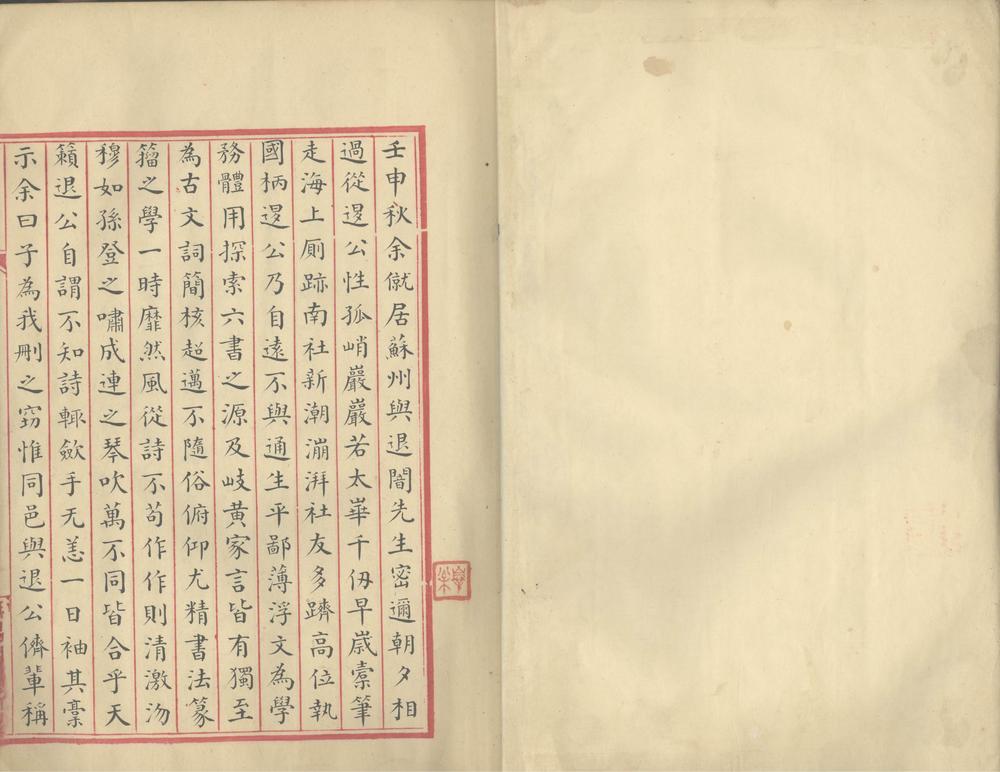 壬申秋余僦居蘇州與退闇先生密邇朝夕相
過從退公性孤峭巖巖若太華千仞早歲橐筆
走海上厠跡南社新潮澎湃社友多躋高位執
國柄退公乃自遠不與通生平鄙薄浮文為學
務體用探索六書之源及岐黃家言皆有獨至
為古文詞簡核超邁不隨俗俯仰尤精書法篆
籀之學一時靡然風從詩不苟作作則清激沕
穆如孫登之嘯成連之琴吹萬不同皆合乎天
籟退公自謂不知詩輒斂手无恙一日袖其稾
示余曰子為我刪之窃惟同邑與退公儕輩稱